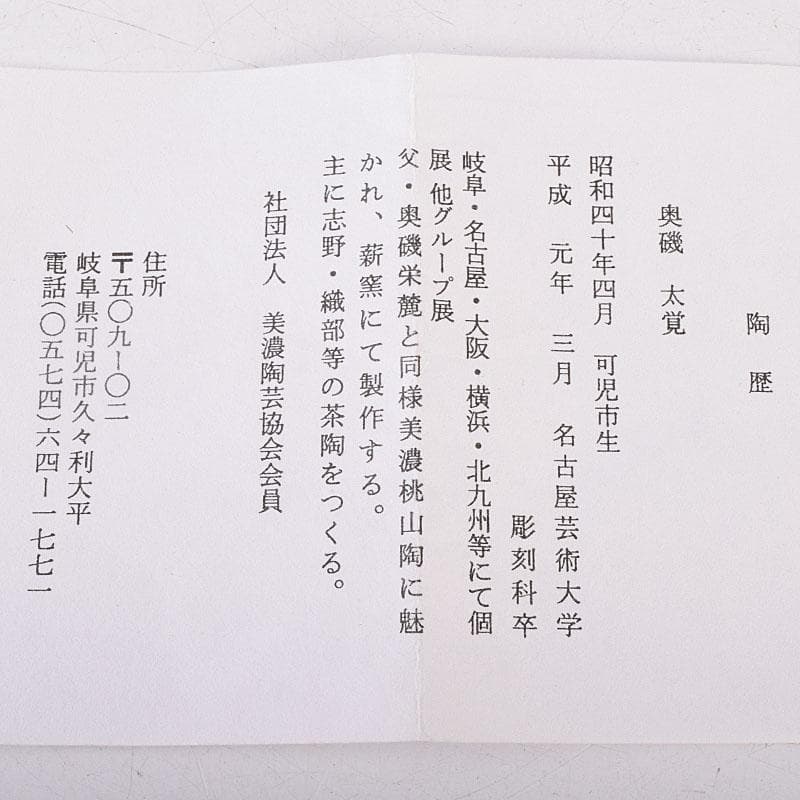 陶歴
奥磯 太覚
昭和四十年四月 可児市生
平成 元年 三月 名古屋芸術大学
彫刻科卒
岐阜・名古屋・大阪・横浜・北九州等にて個
展 他グループ展
父・奥磯栄麓と同様美濃桃山陶に魅
かれ、薪窯にて製作する。
主に志野・織部等の茶陶をつくる。
社団法人 美濃陶芸協会会員
住所
〒五〇九ー〇二
岐阜県可児市久々利大平
電話(〇五七四)六四ー一七七一